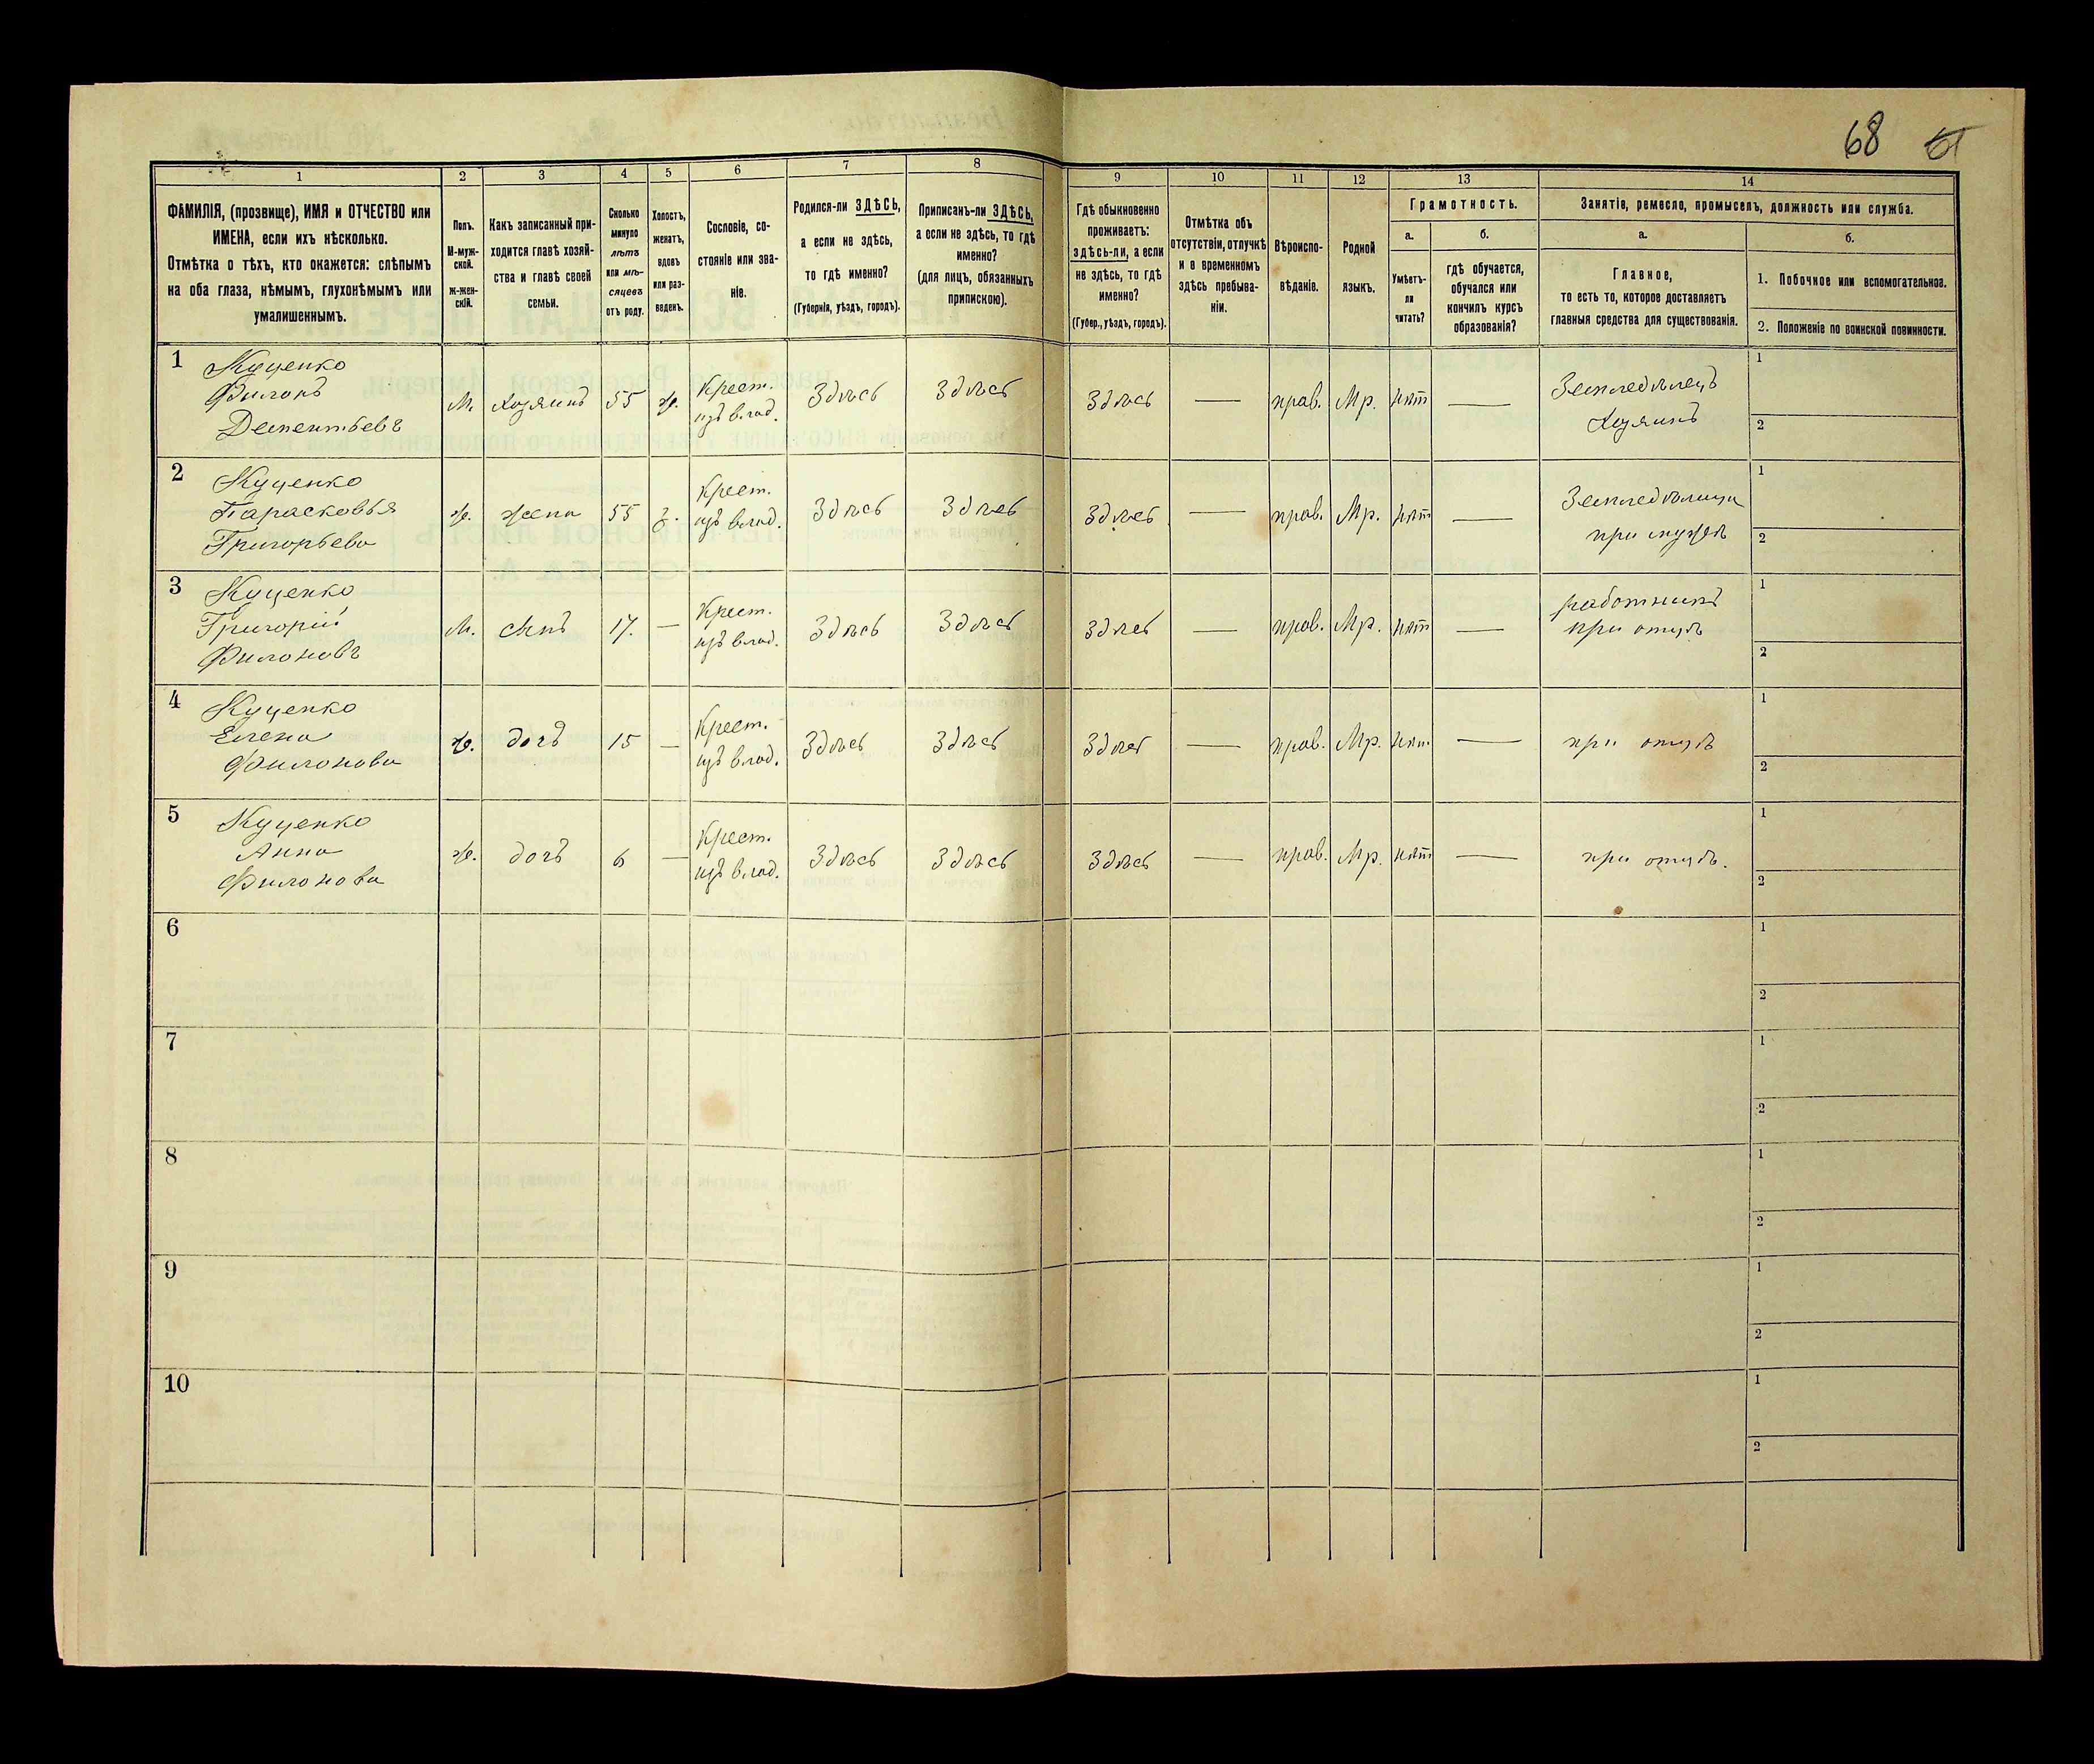 68
1 2 3 4 5 6 7 8 9 10 11 12 13 14
ФАМИЛІЯ, (прозвище), ИМЯ и ОТЧЕСТВО или
ИМЕНА, если ихъ нѣсколько.
Отмѣтка о тѣхъ, кто окажется: слѣпымъ
на оба глаза, нѣмымъ, глухонѣмымъ или
умалишеннымъ.
Полъ.
М-муж-
ской.
ж-жен-
скій.
Какъ записанный при-
ходится главѣ хозяй-
ства и главѣ своей
семьи.
Сколько
минуло
лѣтъ
или мѣ-
сяцевъ
отъ роду.
Холостъ,
женатъ,
вдовъ
или раз-
веденъ.
Сословіе, со-
стояніе или зва-
ніе.
Родился-ли ЗДѢСЬ,
а если не здѣсь,
то гдѣ именно?
(Губернія, уѣздъ, городъ).
Приписанъ-ли ЗДѢСЬ,
а если не здѣсь, то гдѣ
именно?
(для лицъ, обязанныхъ
припискою).
Гдѣ обыкновенно
проживаетъ:
здѣсь-ли, а если
не здѣсь, то гдѣ
именно?
(Губер., уѣздъ, городъ).
Отмѣтка объ
отсутствіи, отлучкѣ
и о временномъ
здѣсь пребыва-
ніи.
Вѣроиспо-
вѣданіе.
Родной
языкъ.
Грамотность.
а.
Умѣетъ-
ли
читать?
б.
гдѣ обучается,
обучался или
кончилъ курсъ
образованія?
Занятіе, ремесло, промыселъ, должность или служба.
а.
Главное,
то есть то, которое доставляетъ
главныя средства для существованія.
б.
1. Побочное или вспомогательное.
2. Положеніе по воинской повинности.
1
Куценко
Филонъ
Дементьевъ
М.
Хозяинъ
55
ж.
Крест.
изъ влад.
Здѣсь
Здѣсь
Здѣсь
—
прав.
Мр.
нѣт
—
Земледѣлецъ
Хозяинъ
1
2
2
Куценко
Парасковья
Григорьева
ж.
жена
55
з.
Крест.
изъ влад.
Здѣсь
Здѣсь
Здѣсь
—
прав.
Мр.
нѣт
—
Земледѣлица
при мужѣ
1
2
3
Куценко
Григорій
Филоновъ
М.
сынъ
17.
—
Крест.
изъ влад.
Здѣсь
Здѣсь
Здѣсь
—
прав.
Мр.
нѣт
—
работникъ
при отцѣ
1
2
4
Куценко
Елена
Филонова
ж.
дочь
15
—
Крест.
изъ влад.
Здѣсь
Здѣсь
Здѣсь
—
прав.
Мр.
нѣт
—
при отцѣ
1
2
5
Куценко
Анна
Филонова
ж.
дочь
6
—
Крест.
изъ влад.
Здѣсь
Здѣсь
Здѣсь
—
прав.
Мр.
нѣт
—
при отцѣ.
1
2
6
1
2
7
1
2
8
1
2
9
1
2
10
1
2